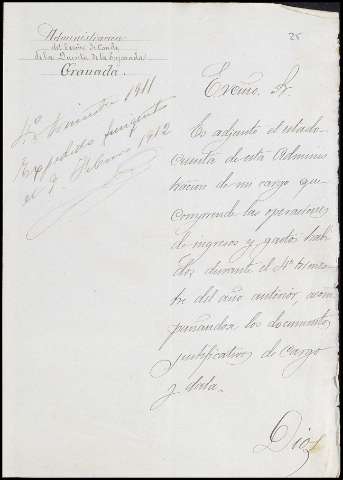 Administración
del Excmo. Sr. Conde
de la Puebla de la
Granada.
25
4º trimestre 1911
Expedido
el 9. Febrero 1912
Excmo. Sr.
Es adjunto el estado-
cuenta de esta Adminis
tracion de mi cargo que
comprende las operaciones
de ingresos y gastos habi
dos durante el 4º trimes-
tre del año anterior, acom
pañandose los documentos
justificativos de cargo
y data.
Dios